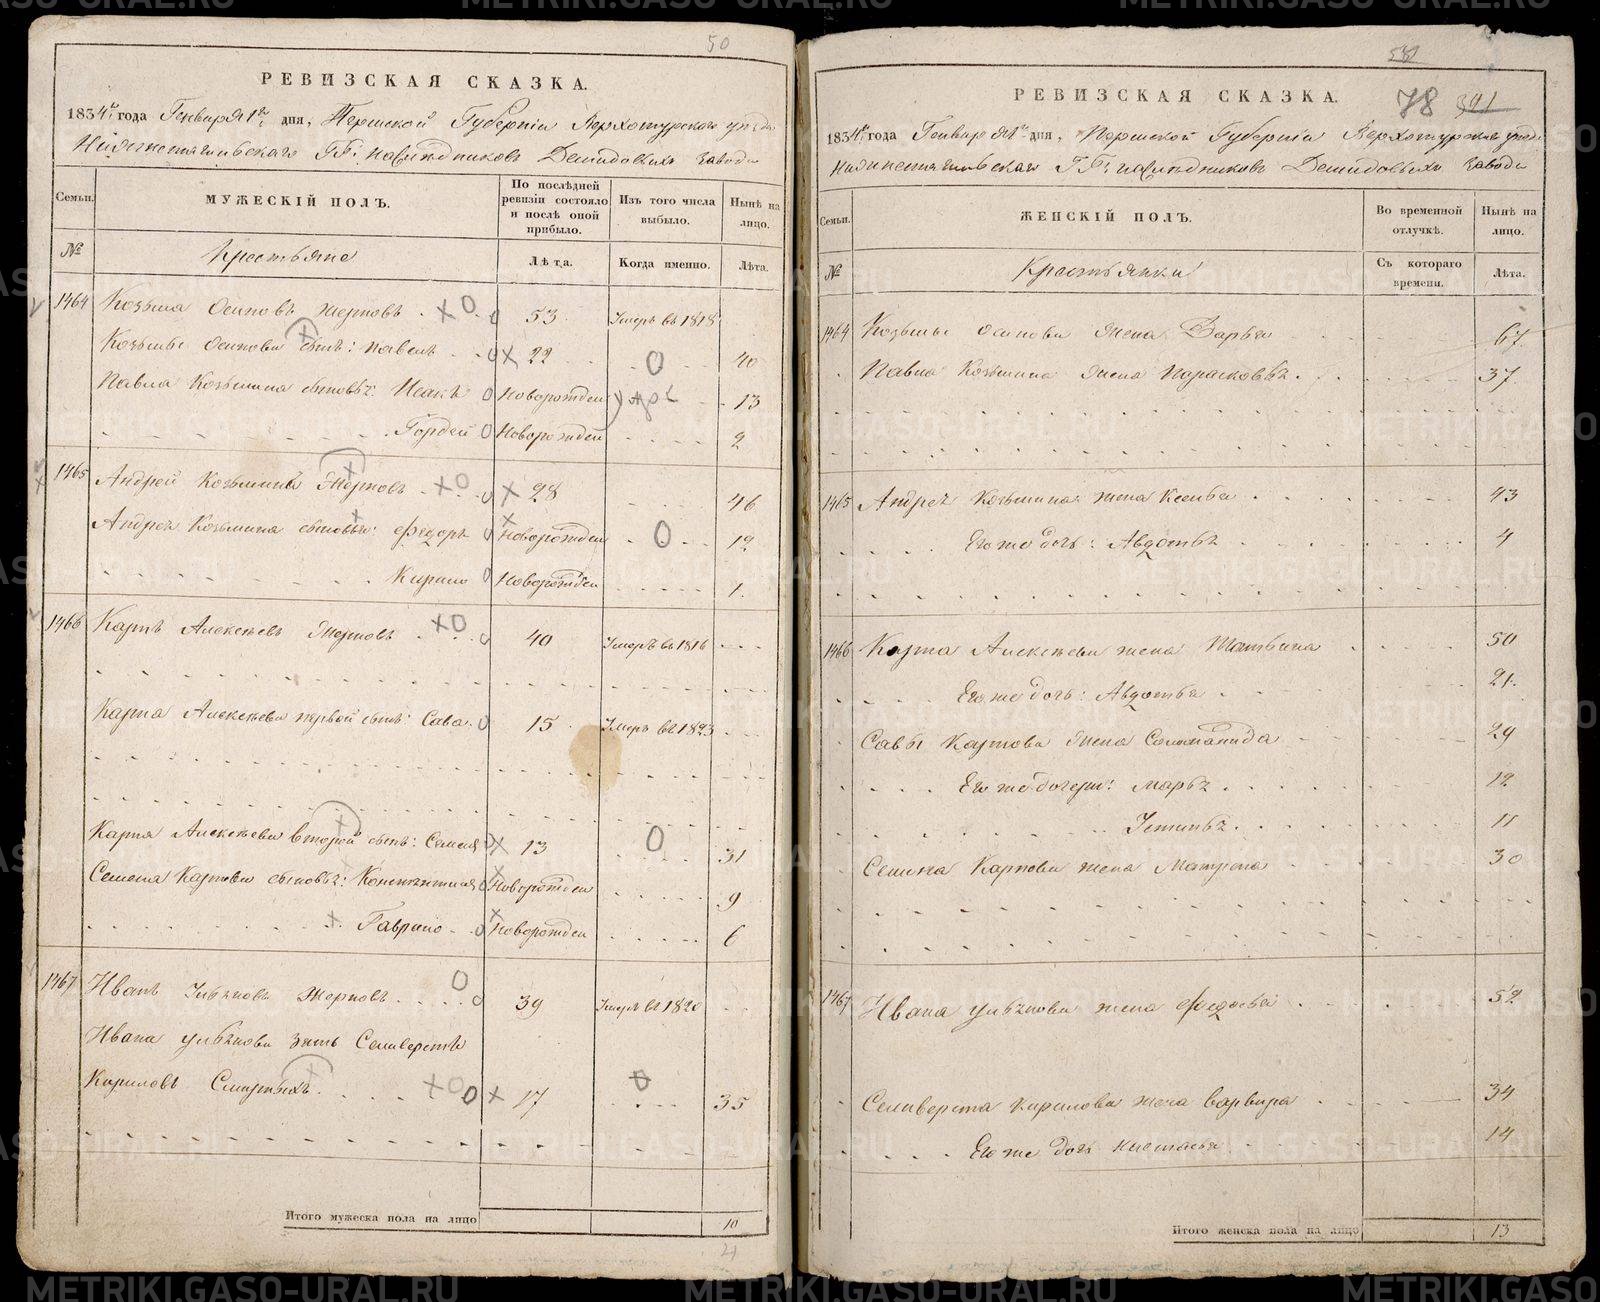 50
РЕВИЗСКАЯ СКАЗКА.
1834го года Генваря 1го дня, Пермской Губернiи Верхотурскаго уезда
Нижнетагильскаго ГГ: наследниковъ Демидовыхъ завода
Семьи.
МУЖЕСКIЙ ПОЛЪ.
По послѣдней ревизiи состояло и послѣ оной прибыло.
Изъ того числа выбыло.
Нынѣ на лицо.
№
Крестьяне
Лѣта.
Когда именно.
Лѣта.
1464 Козьма Осиповъ Жерновъ 53 Умеръ въ 1818
Козьмы Осипова сынъ: Павелъ 22 40
Павла Козьмина сыновья: Исакъ Новорожден 13
Гордей Новорожден 2
1465 Андрей Козьминъ Жерновъ 28 46
Андрея Козьмина сыновья: Федоръ Новорожден 12
Кирило Новорожден 1
1466 Карпъ Алексѣевъ Жерновъ 40 Умеръ въ 1816
Карпа Алексѣева первой сынъ: Сава 15 Умеръ въ 1823
Карпа Алексѣева второй сынъ: Семенъ 13 31
Семена Карпова сыновья: Констянтинъ Новорожден 9
Гаврило Новорожден 6
1467 Иванъ Жерновъ 39 Умеръ въ 1820
Ивана зять Селиверстъ
Кириловъ 17 35
Итого мужеска пола на лицо 10
78 391
РЕВИЗСКАЯ СКАЗКА.
1834го года Генваря 1го дня, Пермской Губернiи Верхотурскаго уезда
Нижнетагильскаго ГГ: наследниковъ Демидовыхъ завода
Семьи.
ЖЕНСКIЙ ПОЛЪ.
Во временной отлучкѣ.
Нынѣ на лицо.
№
Крестьянки
Съ котораго времени.
Лѣта.
1464 Козьмы Осипова жена Дарья 67
Павла Козьмина жена Парасковья 37
1465 Андрея Козьмина жена Ксенья 43
Его же дочь: Авдотья 4
1466 Карпа Алексѣева жена 50
Его же дочь: Авдотья 21
Савы Карпова жена Соломанида 29
Его же дочери: Марья 12
Устинья 11
Семена Карпова жена Матрена 30
1467 Ивана жена Федосья 52
Селиверста Кирилова жена Варвара 34
Его же дочь Настасья 14
Итого женска пола на лицо 13
METRIKI.GASO-URAL.RU